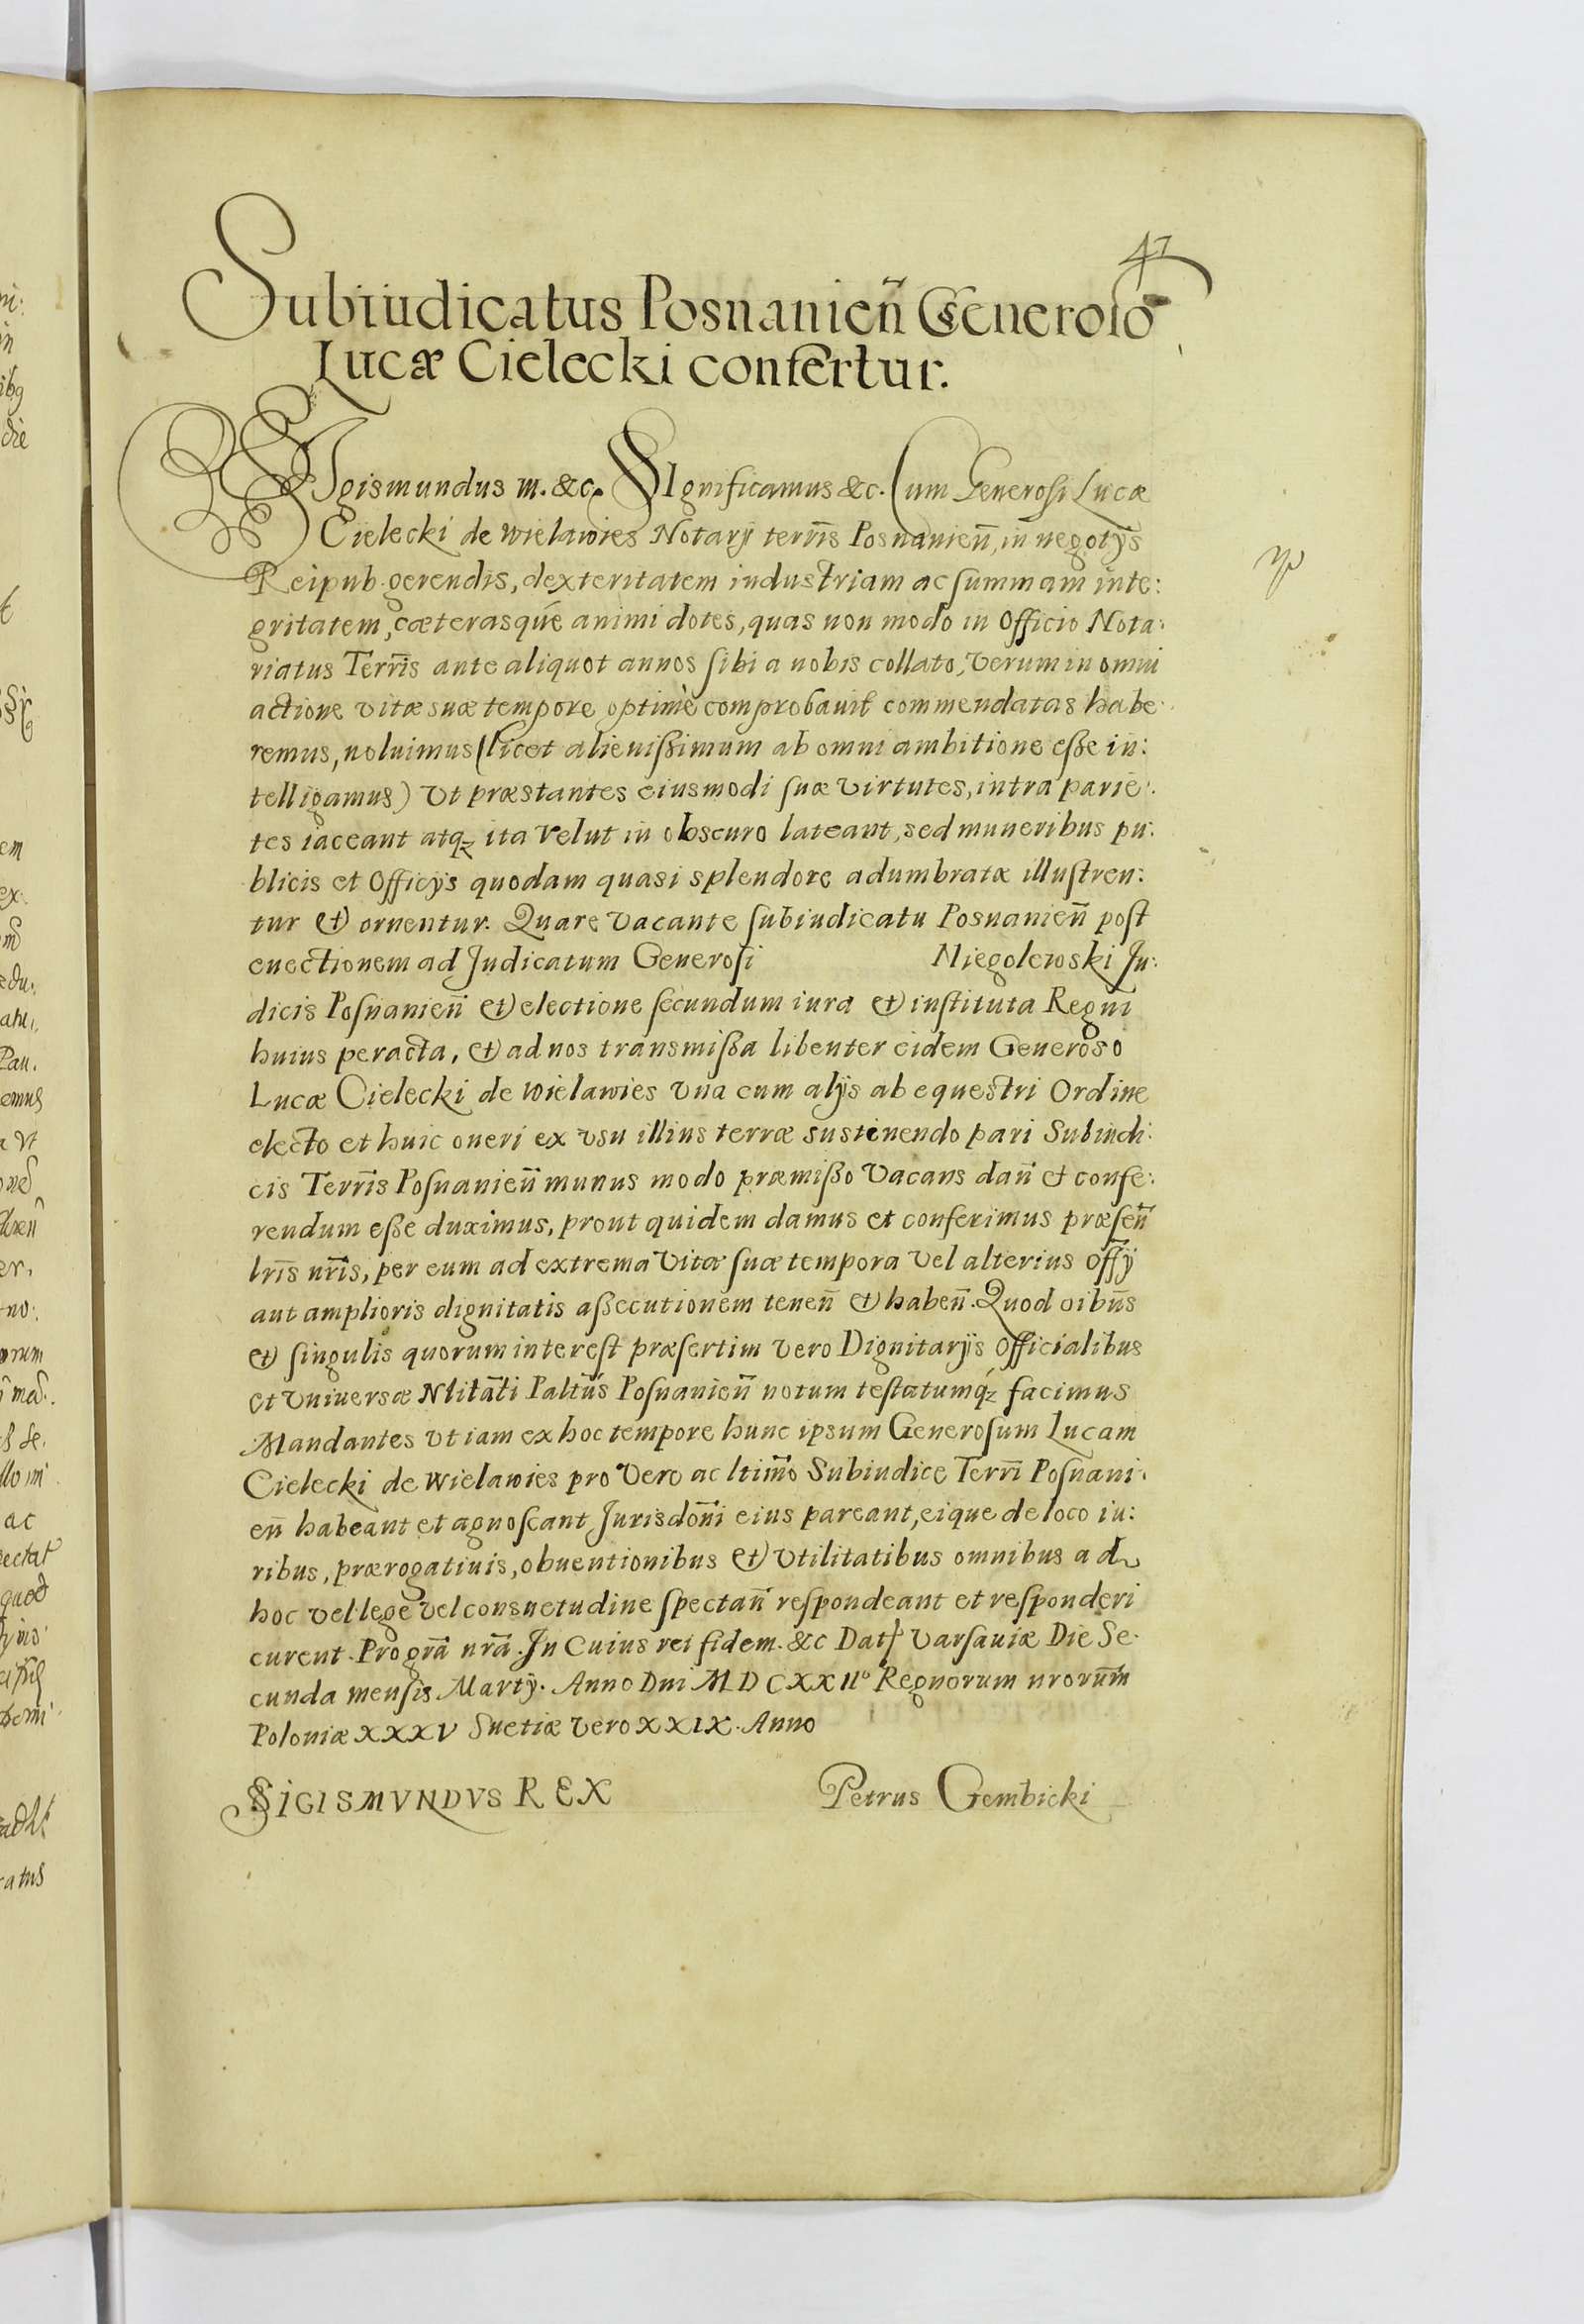 47
Subiudicatus Posnanien̄ Generoso
Lucæ Cielecki confertur.
SIgismundus III. &c. SIgnificamus &c. Cum Generosi Lucæ
Cielecki de Wielawies Notarÿ terrīs Posnanien̄, in negotÿs
Reipub. gerendis, dexteritatem industriam ac summam inte:
gritatem, cæterasqúe animi dotes, quas non modo in Officio Nota:
riatus Terrīs ante aliquot annos sibi a nobis collato, verum in omni
actione vitæ suæ tempore optimè comprobauit commendatas habe:
remus, noluimus (licet alienißimum ab omni ambitione eße in:
telligamus) Vt præstantes eiusmodi suæ virtutes, intra parie:
tes iaceant atqꝫ ita velut in obscuro lateant, sed muneribus pu:
blicis et Officÿs quodam quasi splendore adumbratæ illustren:
tur et ornentur. Quare vacante subiudicatu Posnanien̄ post
euectionem ad Judicatum Generosi Niegolewski Ju:
dicis Posnanien̄ et electione secundum iura et instituta Regni
huius peracta, et ad nos transmißa libenter eidem Generoso
Lucæ Cielecki de Wielawies vna cum alÿs ab equestri Ordine
electo et huic oneri ex vsu illius terræ sustinendo pari Subiudi:
cis Terrīs Posnanien̄ munus modo præmißo Vacans dan̄ et confe:
rendum eße duximus, prout quidem damus et conferimus præsen̄
lrīs nrīs, per eum ad extrema Vitæ suæ tempora vel alterius Offÿ
aut amplioris dignitatis aßecutionem tenen̄ et haben̄. Quod oibūs
et singulis quorum interest præsertim vero Dignitarÿs Officialibus
et vniuersæ Nlitāti Paltūs Posnanien̄ notum testatumq́ꝫ facimus
Mandantes vt iam ex hoc tempore hunc ipsum Generosum Lucam
Cielecki de Wielawies pro Vero ac ltimo̅ Subiudice Terrī Posnani:
en̄ habeant et agnoscant Jurisdon̄i eius pareant, eique de loco iu:
ribus, prærogatiuis, obuentionibus et vtilitatibus omnibus ad
hoc vel lege vel consuetudine spectan̄ respondeant et responderi
curent. Pro grā nrā. Jn Cuius rei fidem. &c Dat: Varsauiæ Die Se:
cunda mensis Martÿ. Anno Dni M D C XX II° Regnorum nrorūm
Poloniæ XXXV Suetiæ vero XXIX. Anno
SIGISMVNDVS REX Petrus Gembicki